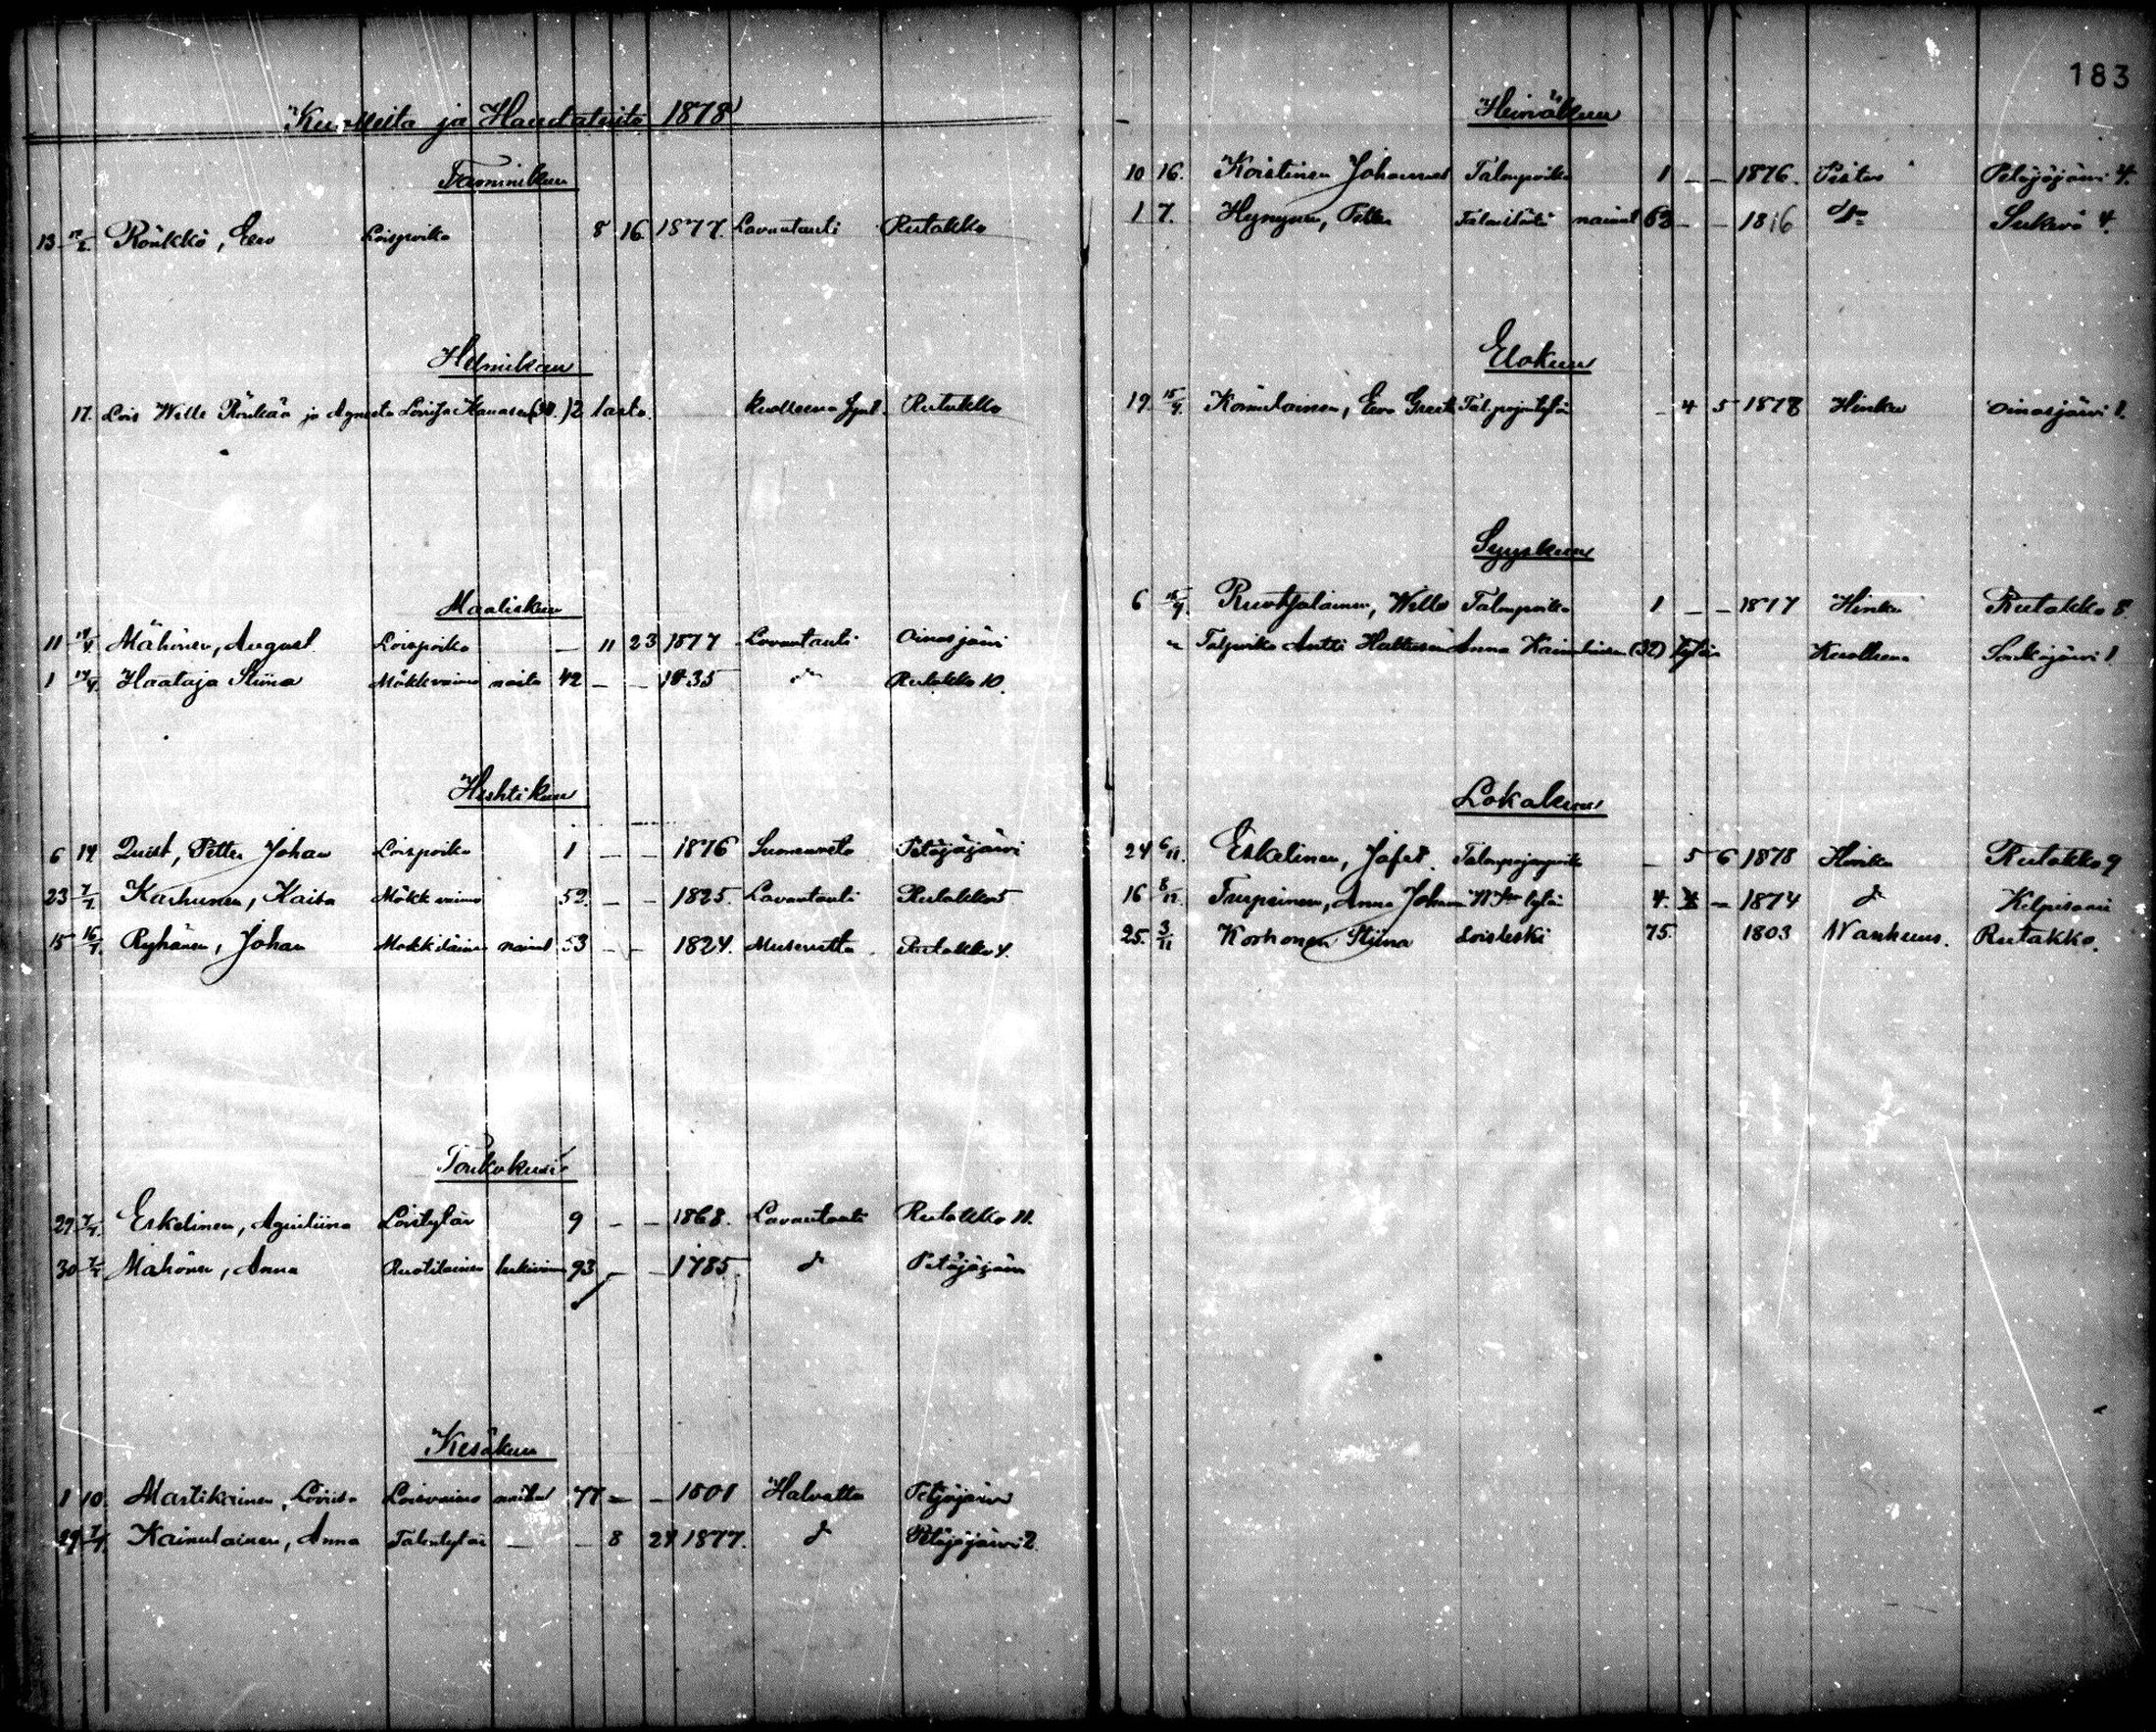 Kuolleita ja Haudatuita 1878
Tammikuu
13 Rönkkö, Eero Loispoika 8 16 1877. Lavantauti Rutakko
Helmikuu
17. Lois Wille Rönkön ja Agneeta Lovisa Kanasen (30.) 2 lasta. kuolleena synt. Rutakko
Maaliskuu
11 Mähönen, August Loispoika — 11 23 1877 Lavantauti Oinasjärvi
1 Haataja Stiina Mökkvaimo naitu 42 — — 1835 Rutakko 10.
Huhtikuu
6 14 Quist, Petter Johan Loispoika 1 — — 1876 Petäjäjärvi
23 7/7. Karhunen, Kaisa Mökkvaimo 52. — — 1825. Lavantauti Rutakko 5
15 16/7. Ryhänen, Johan Mökkiläinen nainut 53 — — 1824. Rutakko 4.
Toukokuu
29 7/7. Eskelinen, Loistytär 9 — — 1868. Lavantauti Rutakko 11.
30 7/7 Mähönen, Anna Ruotilainen leskivaimo 93 — — 1785. d Petäjäjärvi
Kesäkuu
1 10. Martikainen, Loviisa Loisvaimo 77 — — 1801 Halvatta Petäjäjärvi
29 7/7. Kainulainen, Anna Talontytär — — 8 29 1877. d Petäjäjärvi 2.
183
Heinäkuu
10 16. Koistinen Johannes Talonpoika 1 — — 1876. Pistos Petäjäjärvi 4.
1 7. Hynynen, Petter nainut 63 — — 1816 Do Sukeva 4.
Elokuu
19. 15/9. Komulainen, Eeva Greeta Tal.pojantytär — 4 5 1878 Hinku Oinasjärvi 1.
Syyskuu
6 15/9. Ruotsalainen, Wille Talonpoika 1 — — 1877 Hinku Rutakko 8.
" Talpoika Antti Anna Kainulaisen (32) tytär Kuolleena Sonkajärvi 1
Lokakuu
24 6/11. Eskelinen, Jafet. Talonpojanpoika — 5 6 1878 Hinku Rutakko 9
16 Turpeinen, Anna Johana tytär 4. 4 — 1874 d
25. 3/11 Korhonen Stiina Loisleski 75. 1803 Wanhuus. Rutakko.